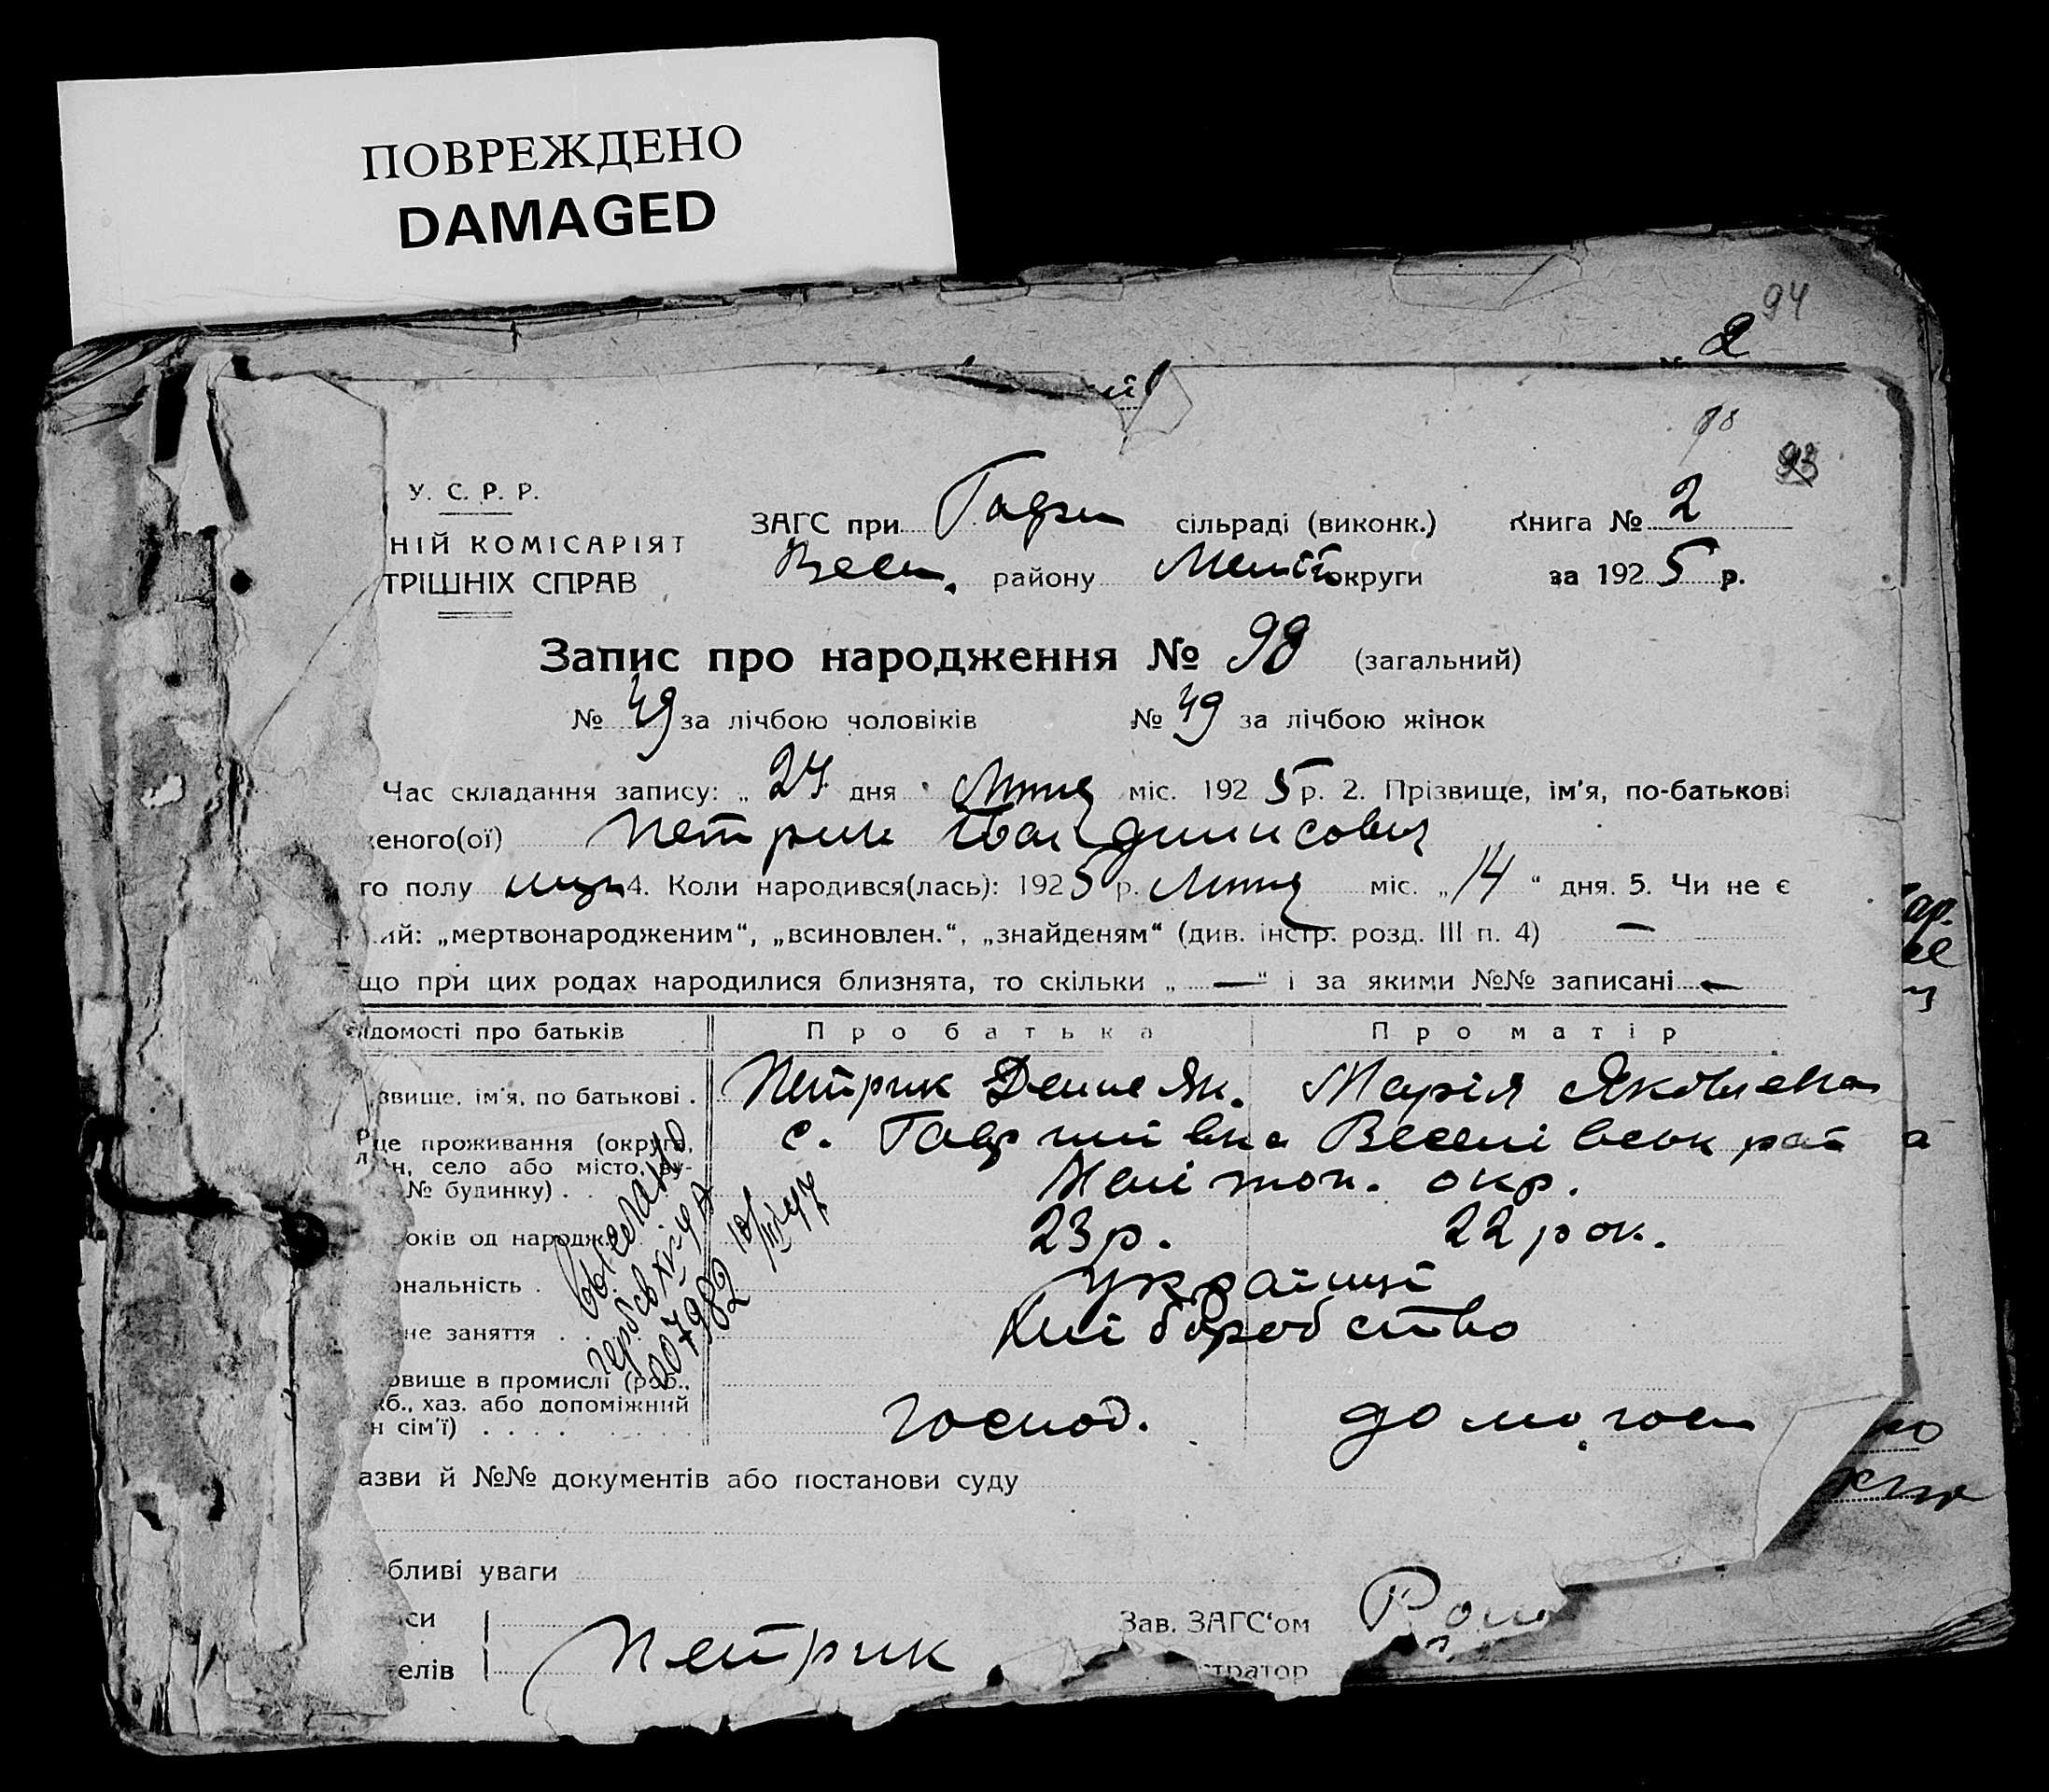 ПОВРЕЖДЕНО
DAMAGED
94
2
93
У. С. Р. Р.
НІЙ КОМІСАРІЯТ
ТРІШНІХ СПРАВ
ЗАГС при Гаври сільраді (виконк.) Книга № 2
Весел. району Меліт округи за 1925 р.
Запис про народження № 98 (загальний)
№ 49 за лічбою чоловіків № 49 за лічбою жінок
Час складання запису: „ 27 дня міс. 1925 р. 2. Прізвище, ім'я, по-батькові
женого(ої) Петрик Іван Динисович
го полу муж 4. Коли народився(лась): 1925 р. міс. „ 14 “ дня. 5. Чи не є
ий: „мертвонародженим“, „всиновлен.“, „знайденям“ (див. інстр. розд. III п. 4) —
що при цих родах народилися близнята, то скільки „ — “ і за якими №№ записані —
ідомості про батьків Про батька Про матір
звище, ім'я, по батькові . Петрик Денис Як. Марія Яковлевна
це проживання (округа, с. Гаврилівка Веселівськ рай
н, село або місто, ву-
№ будинку) . Мелітоп. окр.
років од народж. 23 р. 22 рок.
ональність . українці
не заняття . . Хліборобство
овище в промислі (роб.,
жб., хаз. або допоміжний господ. домогос
н сім'ї) . . . .
выслано
207982
азви й №№ документів або постанови суду
бливі уваги
си Зав. ЗАГС'ом
елів Петрик стратор